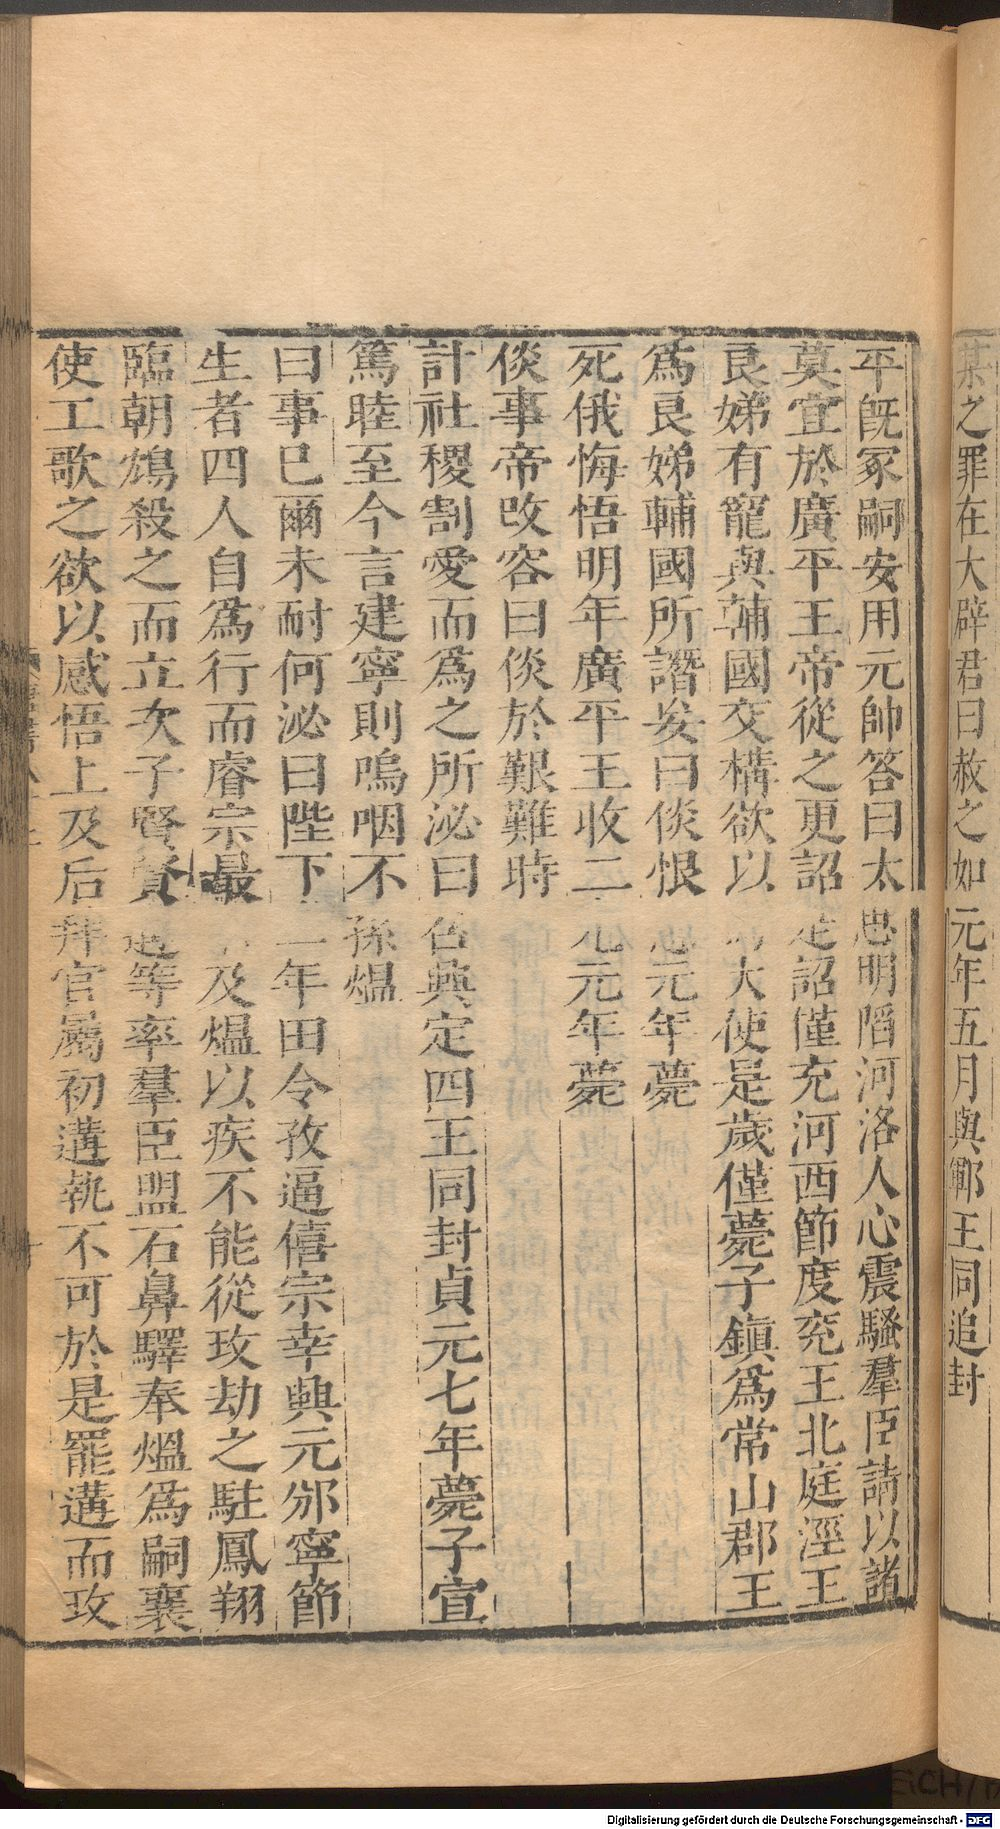 葉之罪在大辟君曰赦之如元年五月與鄆王同追封
平既冢嗣安用元帥答曰太忠明陷河洛人心震騷羣臣請以諸
莫宜於廣平王帝從之更詔是詔僅充河西節度兖王北庭涇王
良娣有寵與輔國交構欲以大使是歲僅薨子鎭爲常山郡王
爲良娣輔國所譖妄曰倓恨元年薨
死俄悔悟明年廣平王收二元年薨
倓事帝改容曰倓於艱難時
計社稷割愛而爲之所泌曰召典定四王同封貞元七年薨子宣
篤睦至今言建寧則嗚咽不孫熅
曰事已爾未耐何泌曰陛下二年田令孜逼僖宗幸興元邠寧節
生者四人自爲行而睿宗最及熅以疾不能從玫劫之駐鳳翔
臨朝鴆殺之而立次子賢賢遘等率羣臣盟石鼻驛奉熅爲嗣襄
使工歌之欲以感悟上及后拜官屬初遘執不可於是罷遘而玫
Digitalisierung gefördert durch die Deutsche Forschungsgemeinschaft - DFG